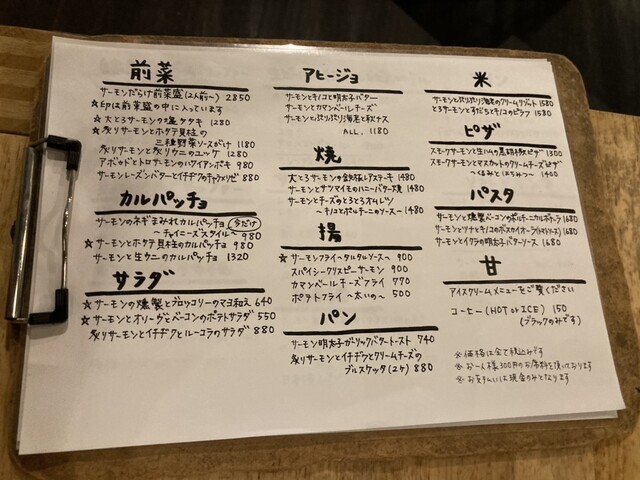 前菜
サーモンだらけ前菜盛(2人前〜) 2850
☆印は前菜盛の中に入っています
☆大とろサーモンの塩タタキ 1280
☆炙りサーモンとホタテ貝柱の
三種野菜ソースがけ 1180
炙りサーモンと炙りウニのユッケ 1280
アボカドとトロサーモンのハワイアンポキ 980
サーモンレーズンバターとイチヂクのキャラメリゼ 880
カルパッチョ
サーモンのネギまみれカルパッチョ 今だけ
〜チャイニーズスタイル〜 980
☆サーモンとホタテ貝柱のカルパッチョ 980
サーモンと生ウニのカルパッチョ 1320
サラダ
☆サーモンの燻製とブロッコリーのマヨ和え 640
☆サーモンとオリーヴとベーコンのポテトサラダ 550
炙りサーモンとイチヂクとルーコラのサラダ 880
アヒージョ
サーモンとキノコと明太子バター
サーモンとカマンベールチーズ
サーモンとぷりぷり海老と秋ナス
ALL. 1180
焼
大とろサーモンの鉄板レアステーキ 1480
サーモンとサツマイモのハニーバター焼 1480
サーモンとチーズのとろとろオムレツ
〜キノコとポルチーニのソース〜 1480
揚
☆サーモンフライ〜タルタルソース〜 900
スパイシークリスピーサーモン 900
カマンベールチーズフライ 770
ポテトフライ〜太いの〜 500
パン
サーモン明太子ガーリックバタートースト 740
炙りサーモンとイチヂクとクリームチーズの
ブルスケッタ(2ヶ) 880
米
サーモンとぷりぷり海老のクリームリゾット 1580
とろサーモンとすだちとキノコのピラフ 1580
ピザ
スモークサーモンと生ハムの ピザ 1300
スモークサーモンとマスカットのクリームチーズピザ
〜くるみとはちみつ〜 1400
パスタ
サーモンと燻製ベーコンのポルチーニカルボナーラ 1680
サーモンとツナとキノコのボスカイオーラ(トマトソース) 1680
サーモンとイクラの明太子バターソース 1680
甘
アイスクリームメニューをご覧ください
コーヒー(HOT or ICE) 150
(ブラックのみです)
※価格は全て税込みです
※お一人様300円のお席料を頂いております
※お支払いは現金のみとなります